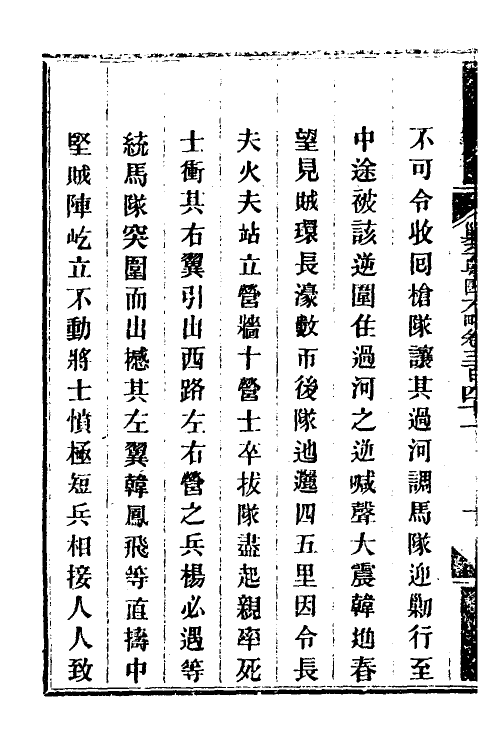 不可令收囘槍隊讓其過河調馬隊迎勦行至
中途被該逆圍住過河之逆喊聲大震韓廸春
望見賊環長濠數帀後隊迤邐四五里因令長
夫火夫站立營牆十營士卒拔隊盡起親率死
士衝其右翼引出西路左右營之兵楊必遇等
統馬隊突圍而出撼其左翼韓鳳飛等直擣中
堅賊陣屹立不動將士憤極短兵相接人人致
卷三百四十一
十